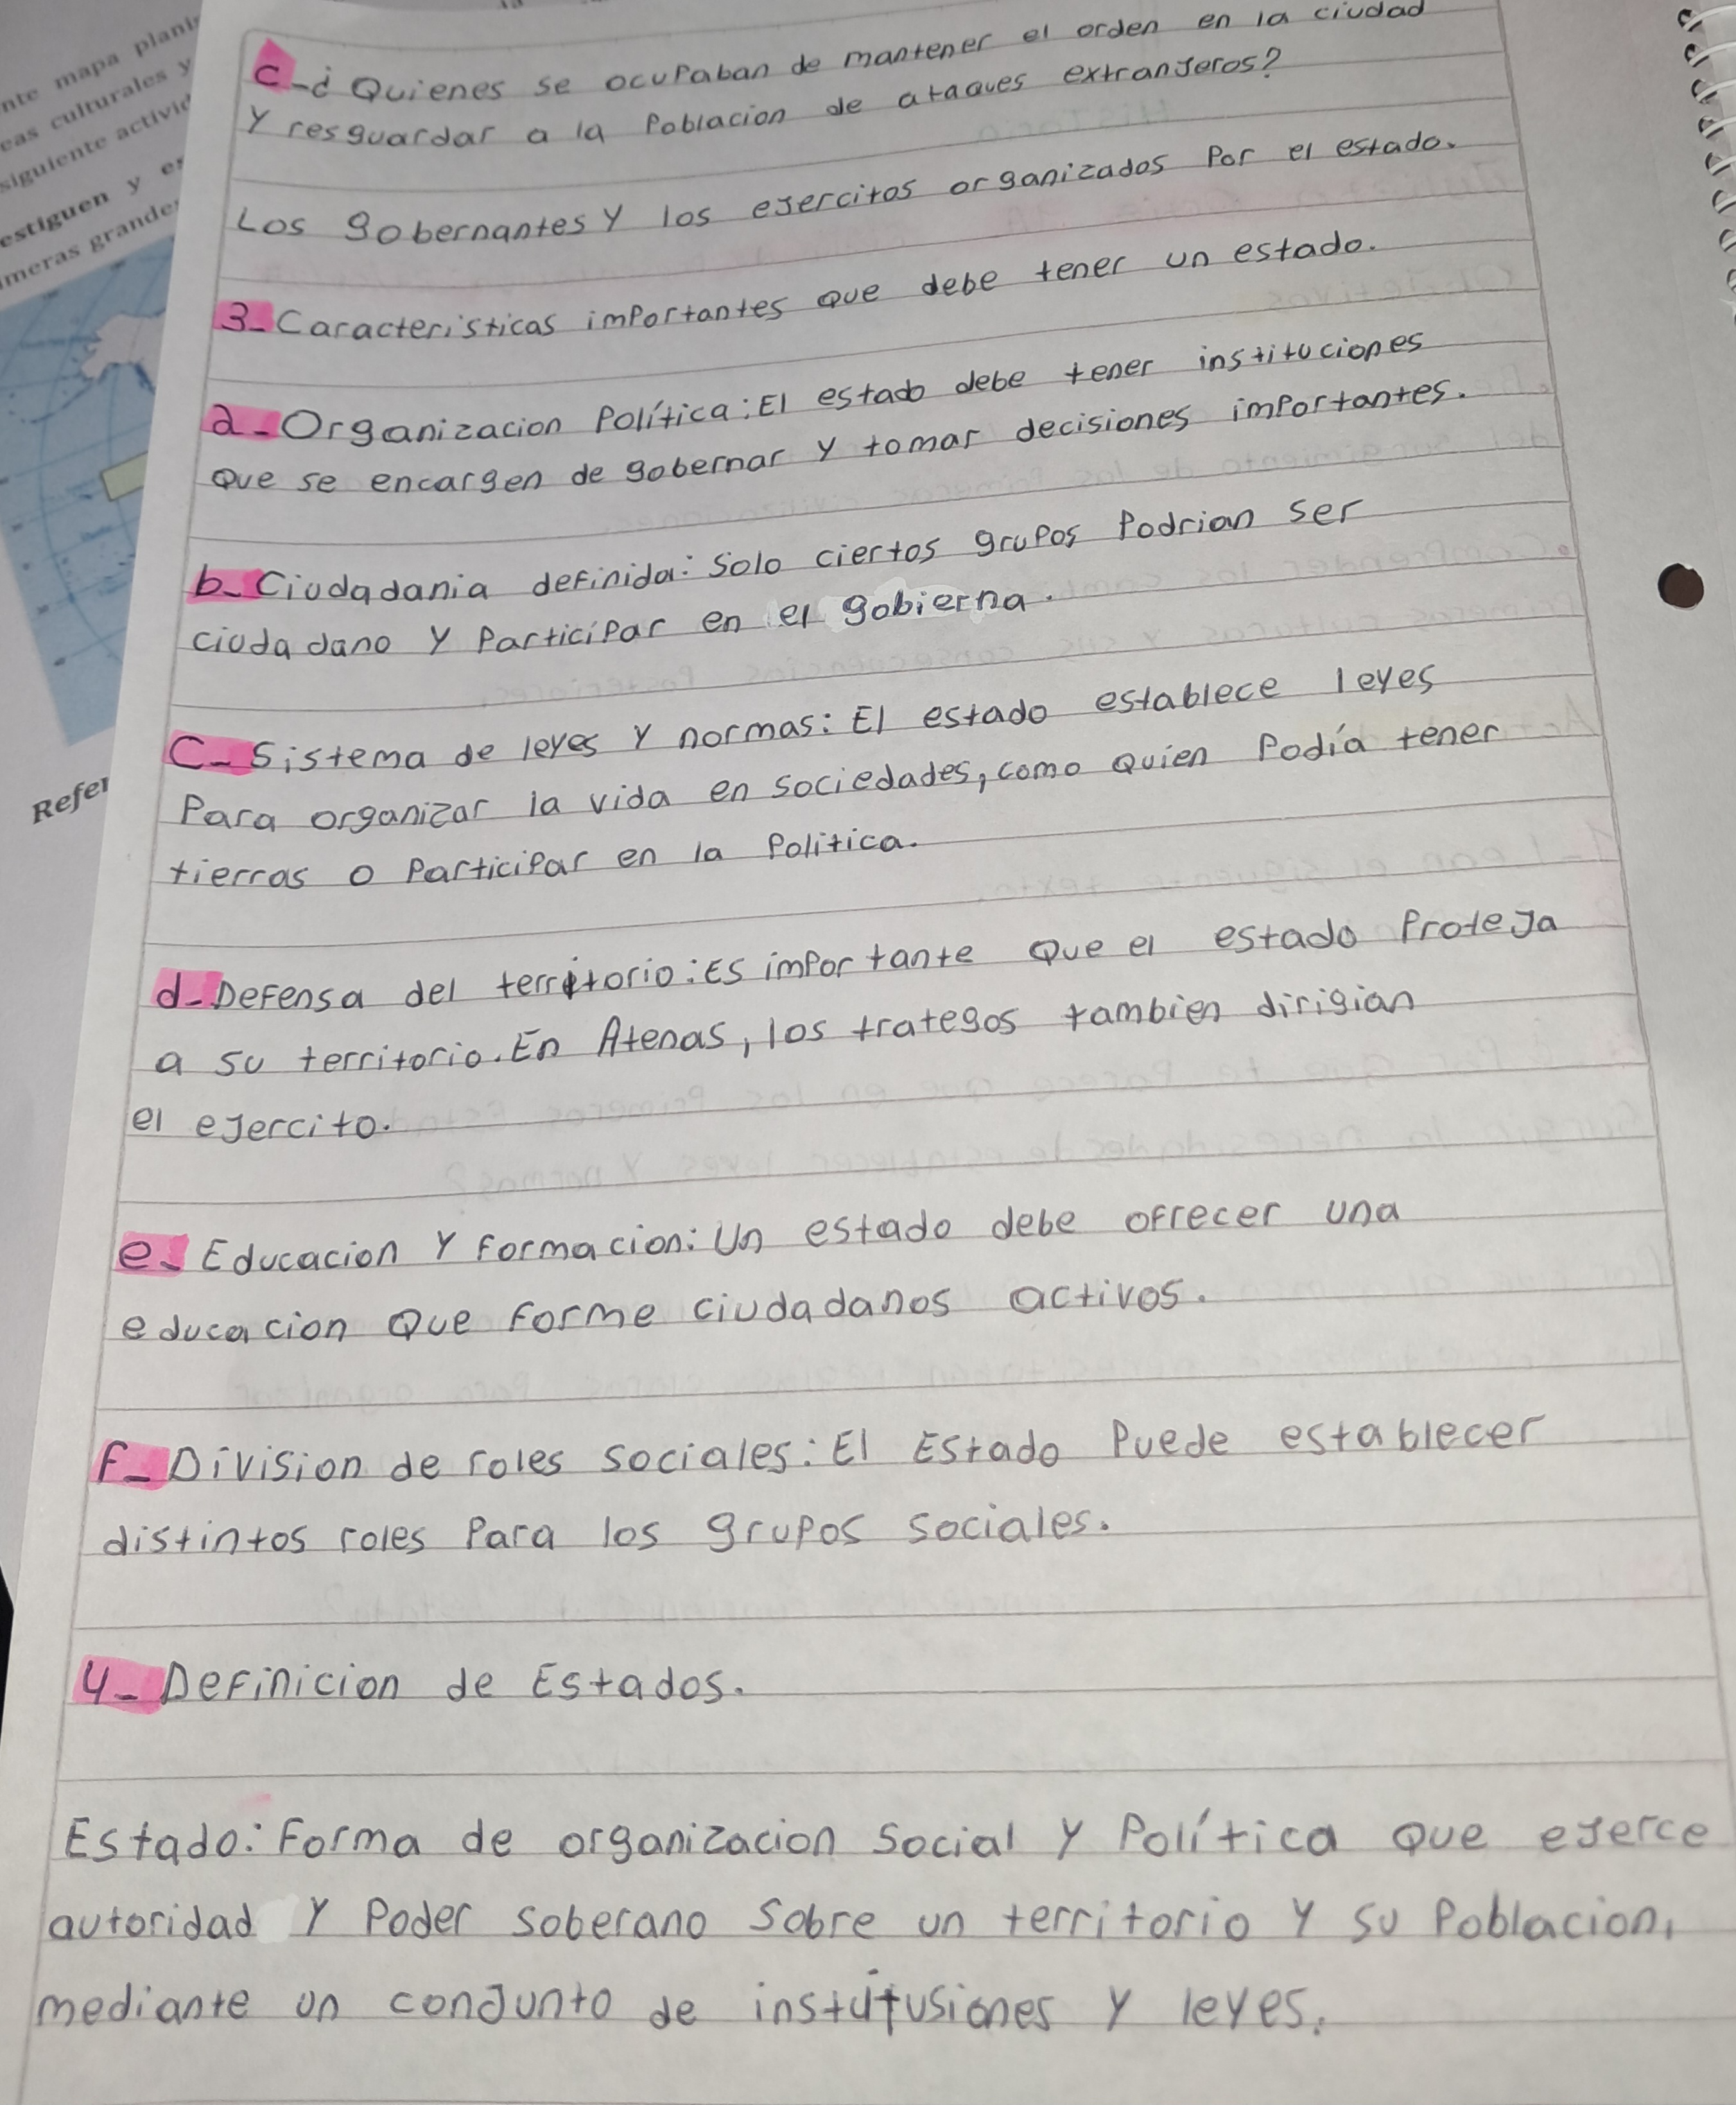 nte mapa plani
eas culturales y
siguiente activid
estiguen y es
imeras grande
Refer
c-¿Quienes se ocupaban de mantener el orden en la ciudad
Y resguardar a la Poblacion de ataques extranjeros?
Los gobernantes y los ejercitos organizados Por el estado.
3- Caracteristicas importantes que debe tener un estado.
a- Organizacion Política: El estado debe tener instituciones
que se encargen de gobernar y tomar decisiones importantes.
b- Ciudadania definida: Solo ciertos grupos Podrian ser
ciudadano y Participar en el gobierna.
C- Sistema de leyes y normas: El estado establece leyes
Para organizar la vida en sociedades, como quien Podía tener
tierras o Participar en la Politica.
d- Defensa del territorio: Es importante que el estado Proteja
a su territorio. En Atenas, los trategos tambien dirigian
el ejercito.
e- Educacion y Formacion: Un estado debe ofrecer una
educacion que forme ciudadanos activos.
F- Division de roles sociales: El Estado Puede establecer
distintos roles Para los grupos sociales.
4- Definicion de Estados.
Estado: Forma de organizacion Social y Política que ejerce
autoridad y Poder soberano Sobre un territorio y su Poblacion,
mediante un conjunto de institusiones y leyes.